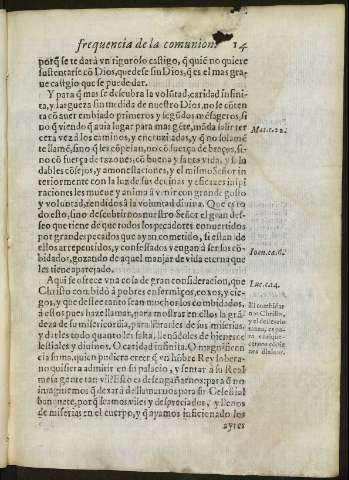 frequencia de la comunion. 14
porq̃ se te darà vn riguroso castigo, q̃ quiẽ no quiere
sustentarse cõ Dios, quedese sin Dios, q̃ es el mas gra-
ue castigo que se puede dar.
Y para q̃ mas se descubra la volũtad, caridad infini-
ta, y largueza sin medida de nuestro Dios, no se cõten
ta cõ auer embiado primeros y segũdos mẽsageros, si
no q̃ viendo q̃ auia lugar para mas gẽte, mãda salir ter
cera vez à los caminos, y encruzijadas, y q̃ no solamẽ
te llamẽ, sino q̃ les cõpelan, no cõ fuerça de braços, si-
no cõ fuerça de razones, cõ buena y santa vida, y salu
dables cõsejos, y amonestaciones, y el mismo Señor in
teriormente con la luz de sus decinas y eficazes inspi
raciones les mueue y anima à venir con grande gusto
y voluntad, rendidos à la voluntad diuina. Que es to
do esto, sino descubrirnos nuestro Señor el gran des-
seo que tiene de que todos los pecadores conuertidos
por grandes pecados que ayan cometido, si estan de
ellos arrepentidos, y confessados vengan à ser sus cõ-
bidados, gozando de aquel manjar de vida eterna que
les tiene aparejado.
Aqui se ofrece vna cosa de gran consideracion, que
Christo conbidò à pobres enfermizos, coxos, y cie-
gos, y que dessee tanto sean muchos los combidados,
à estos pues haze llamar, para mostrar en ellos la grã
deza de su misericordia, para librarles de sus miserias,
y darles todo quanto les falta, llenãdoles de bienes ce
lestiales y diuinos. O caridad infinita. O magnificen
cia suma, quien pudiera creer q̃ vn hõbre Rey sobera-
no quisiera admitir en su palacio, y sentar à su Real
mesa gente tan vil! Esto es desengañarnos: para q̃ no
imaginemos q̃ dexará de llamarnos para su Celestial
banquete, porq̃ seamos viles y despreciados, y llenos
de miserias en el cuerpo, y q̃ ayamos inficionado los
ayres
Mat. c. 22.
Ioan. ca. 6.
Luc. c. 14.
El combidar
nos Christo,